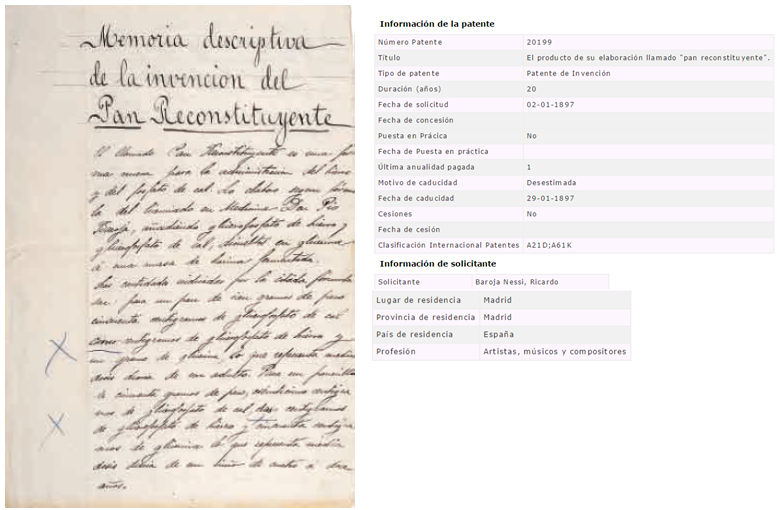 Memoria descriptiva
de la invencion del
Pan Reconstituyente
El llamado Pan Reconstituyente es una for
ma nueva para la administracion del hierro
y del fosfato de cal. Lo elaboro segun fórmu
la del licenciado en Medicina Don Pío
Baroja, añadiendo glicerofosfato de hierro y
glicerofosfato de cal, disueltos en glicerina
á una masa de harina fermentada.
Las cantidades indicadas por la citada fórmula
son: para un pan de cien gramos de peso
cincuenta centigramos de glicerofosfato de cal
centigramos de glicerofosfato de hierro y
un gramo de glicerina, lo que representa media
dosis diaria de un adulto. Para un panecillo
de cincuenta gramos de peso, centigra
mos de glicerofosfato de cal, centigramos
de glicerofosfato de hierro y cincuenta centigra
mos de glicerina lo que representa media
dosis diaria de un niño de cuatro á doce
años.
Información de la patente
Número Patente 20199
Título El producto de su elaboración llamado "pan reconstituyente".
Tipo de patente Patente de Invención
Duración (años) 20
Fecha de solicitud 02-01-1897
Fecha de concesión
Puesta en Prácica No
Fecha de Puesta en práctica
Última anualidad pagada 1
Motivo de caducidad Desestimada
Fecha de caducidad 29-01-1897
Cesiones No
Fecha de cesión
Clasificación Internacional Patentes A21D;A61K
Información de solicitante
Solicitante Baroja Nessi, Ricardo
Lugar de residencia Madrid
Provincia de residencia Madrid
País de residencia España
Profesión Artistas, músicos y compositores